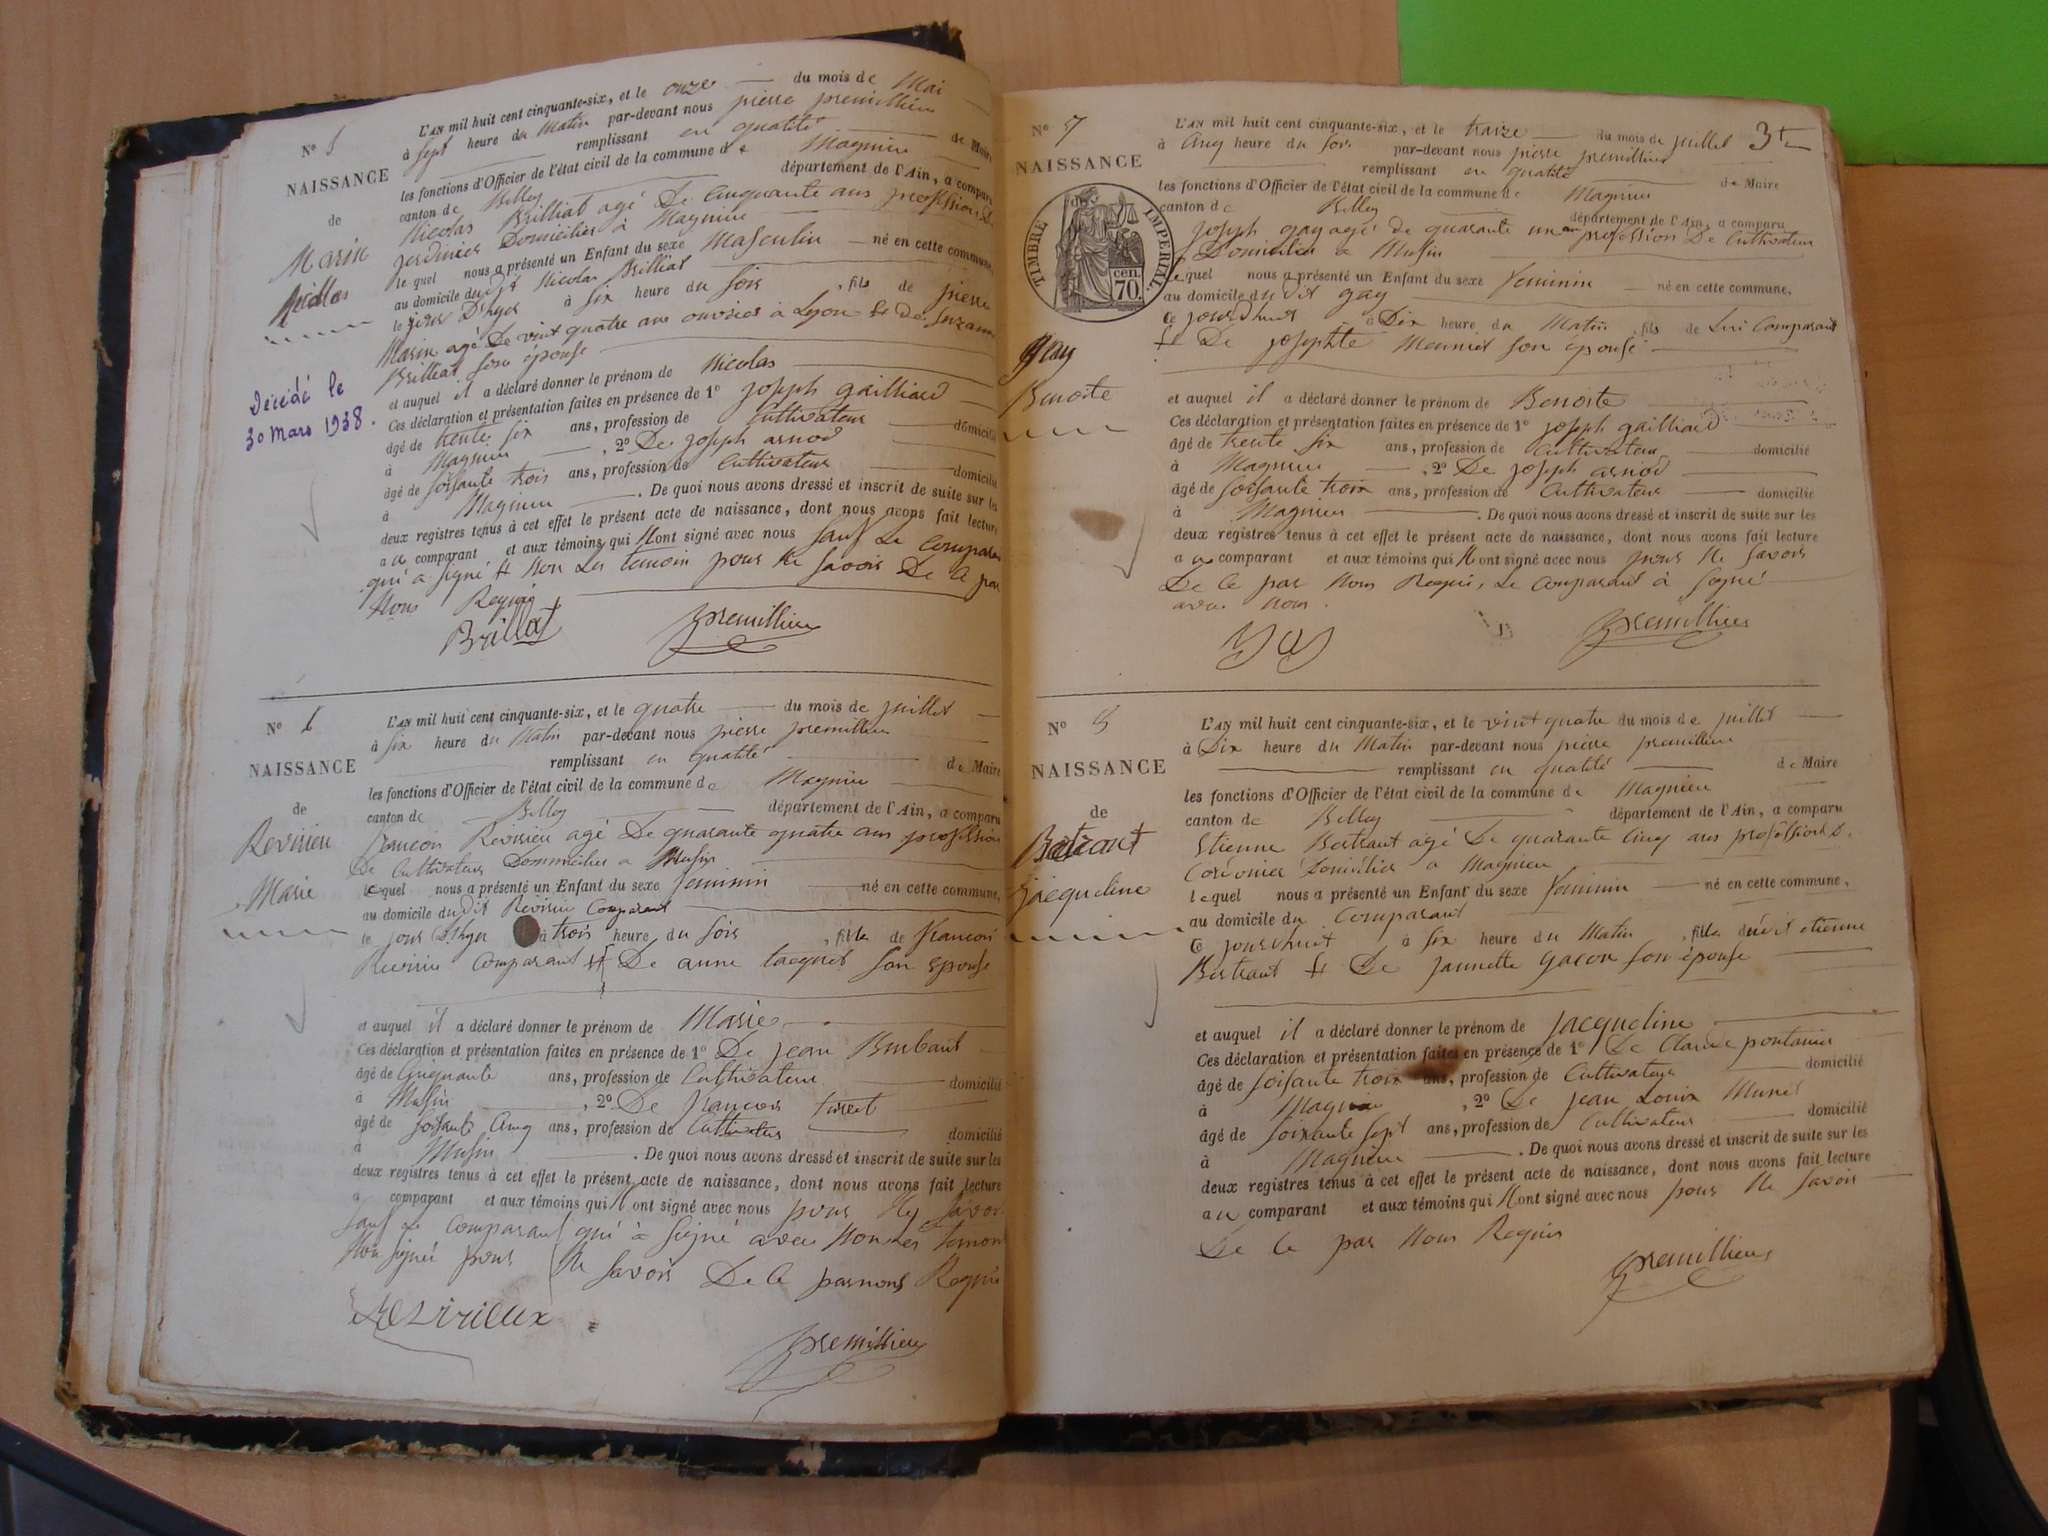 N° 5
NAISSANCE
de
Marin
Nicollas
Décédé le
30 Mars 1938.
L'AN mil huit cent cinquante-six, et le onze du mois de Mai
à Sept heure du Matin par-devant nous pierre premillieu
remplissant en qualité de Maire
les fonctions d'Officier de l'état civil de la commune de Magnieu
canton de Belley département de l'Ain, a comparu
Nicolas Brilliat agé De Cinquante ans profession De
jardinier Domicilier à Magnieu
lequel nous a présenté un Enfant du sexe Masculin né en cette commune,
au domicile dudit Nicolas Brilliat
le jour D'hyer à six heure du soir, fils de pierre
Marin agé De vint quatre ans ouvrier à Lyon et De Suzanne
Brilliat son épouse
et auquel il a déclaré donner le prénom de Nicolas
Ces déclaration et présentation faites en présence de 1° joseph gailliard
âgé de trente six ans, profession de Cultivateur domicilié
à Magnieu, 2° De joseph arnod
âgé de soisante trois ans, profession de Cultivateur domicilié
à Magnieu. De quoi nous avons dressé et inscrit de suite sur les
deux registres tenus à cet effet le présent acte de naissance, dont nous avons fait lecture
au comparant et aux témoins qui Nont signé avec nous sauf Le Comparan
qui a signé et Non Les temoin pour Ne savoir De ce par
Nous Requis
Brilliat premillieu
N° 6
NAISSANCE
de
Revirieu
Marie
L'AN mil huit cent cinquante-six, et le quatre du mois de juillet
à six heure du Matin par-devant nous pierre premillieu
remplissant en qualité de Maire
les fonctions d'Officier de l'état civil de la commune de Magnieu
canton de Belley département de l'Ain, a comparu
francois Revirieu agé De quarante quatre ans profession
De Cultivateur Dommicilier a Musin
lequel nous a présenté un Enfant du sexe feminin né en cette commune,
au domicile dudit Revirieu Comparant
le jour D'hyer à trois heure du soir, fille de francois
Revirieu Comparant et De anne Jacquet son epouse
et auquel il a déclaré donner le prénom de Marie
Ces déclaration et présentation faites en présence de 1° De jean Burbant
âgé de Cinquante ans, profession de Cultivateur domicilié
à Musin, 2° De francois
âgé de soisante Cinq ans, profession de Cultivateur domicilié
à Musin. De quoi nous avons dressé et inscrit de suite sur les
deux registres tenus à cet effet le présent acte de naissance, dont nous avons fait lecture
a comparant et aux témoins qui Nont signé avec nous pour Ny savoir
sauf Le Comparant qui à signé avec Nous Les temoin
Non signé pour Ne savoir De ce par nous Requis
Revirieux
premillieu
N° 7
3e
NAISSANCE
TIMBRE IMPERIAL
cen. 70.
Gay
Benoite
L'AN mil huit cent cinquante-six, et le traize du mois de juillet
à Cinq heure du soir par-devant nous pierre premillieu
remplissant en qualité de Maire
les fonctions d'Officier de l'état civil de la commune de Magnieu
canton de Belley département de l'Ain, a comparu
joseph gay agé de quarante un an profession De Cultivateur
Domicilier a Musin
lequel nous a présenté un Enfant du sexe feminin né en cette commune,
au domicile dudit gay
Ce jourdhuit à Dix heure du Matin, fils de Lui Comparant
et De josephte Meunier son épouse
et auquel il a déclaré donner le prénom de Benoite
Ces déclaration et présentation faites en présence de 1° joseph gailliard
âgé de trente six ans, profession de Cultivateur domicilié
à Magnieu, 2° De joseph arnod
âgé de soisante trois ans, profession de Cultivateur domicilié
à Magnieu. De quoi nous avons dressé et inscrit de suite sur les
deux registres tenus à cet effet le présent acte de naissance, dont nous avons fait lecture
au comparant et aux témoins qui Nont signé avec nous pour Ne savoir
De ce par Nous Requis, Le Comparant à signé
avec Nous.
Gay premillieu
N° 8
NAISSANCE
de
Bertrant
jacqueline
L'AN mil huit cent cinquante-six, et le vint quatre du mois de juillet
à Dix heure du Matin par-devant nous pierre premillieu
remplissant en qualité de Maire
les fonctions d'Officier de l'état civil de la commune de Magnieu
canton de Belley département de l'Ain, a comparu
Etienne Bertrant agé De quarante Cinq ans profession D.
Cordonier Domicilier a Magnieu
lequel nous a présenté un Enfant du sexe feminin né en cette commune,
au domicile du Comparant
Ce jourdhuit à six heure du Matin, fille dudit etienne
Bertrant et De jannette gacon son épouse
et auquel il a déclaré donner le prénom de jacqueline
Ces déclaration et présentation faites en présence de 1° De Claude pontanier
âgé de soisante trois ans, profession de Cultivateur domicilié
à Magnieu, 2° De jean Louis Muret
âgé de soixante sept ans, profession de Cultivateur domicilié
à Magnieu. De quoi nous avons dressé et inscrit de suite sur les
deux registres tenus à cet effet le présent acte de naissance, dont nous avons fait lecture
au comparant et aux témoins qui Nont signé avec nous pour Ne savoir
De ce par Nous Requis
premillieu